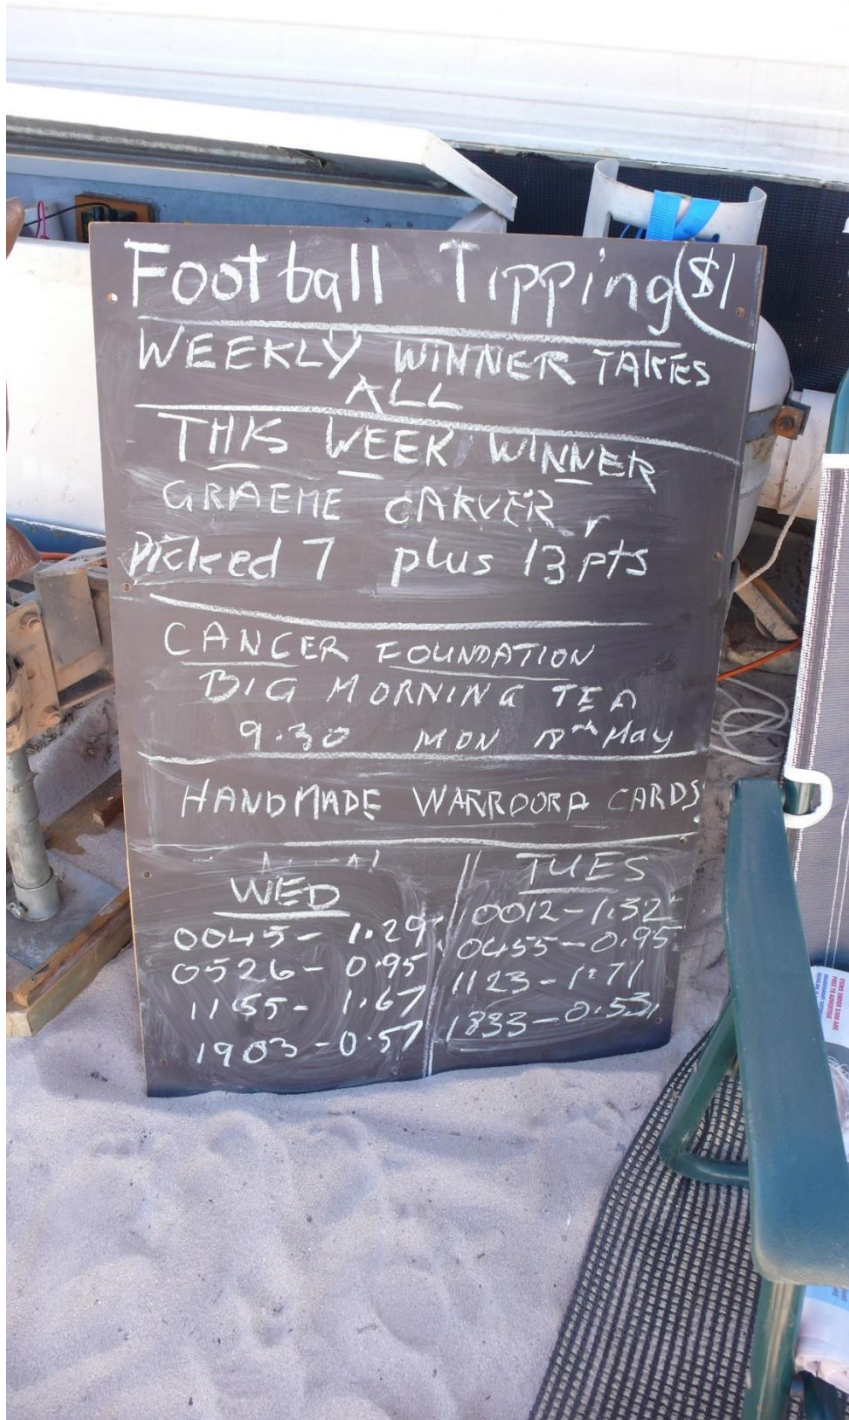 Football Tipping ($1
WEEKLY WINNER TAKES
ALL
THIS WEEK WINNER
GRAEME CARVER
Picked 7 plus 13 pts
CANCER FOUNDATION
BIG MORNING TEA
9.30 MON 18th May
HANDMADE WARROORA CARDS
WED
0045 - 1.29
0526 - 0.95
1155 - 1.67
1903 - 0.57
TUES
0012 - 1.32
0455 - 0.95
1123 - 1.71
1833 - 0.53